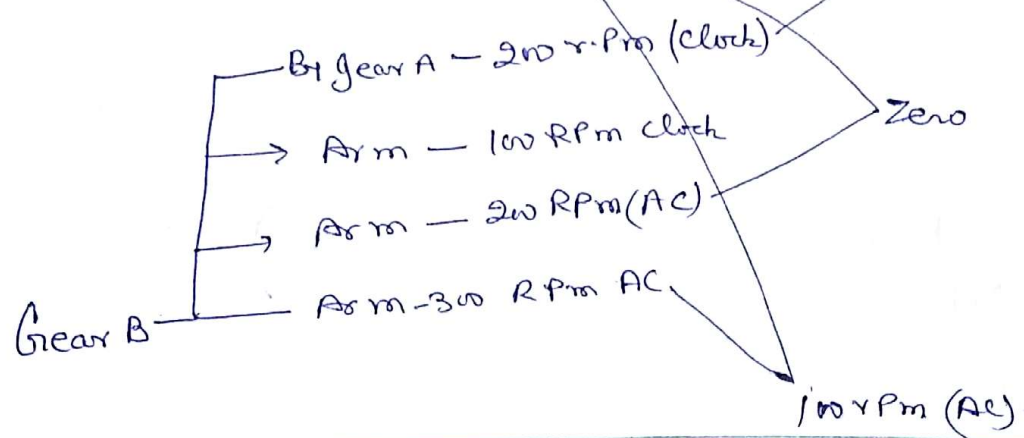 By gear A - 200 r.Pm (clock)
Zero
Arm - 100 RPm clock
Arm - 200 RPm (AC)
Arm - 300 RPm AC
Gear B
100 rPm (AC)